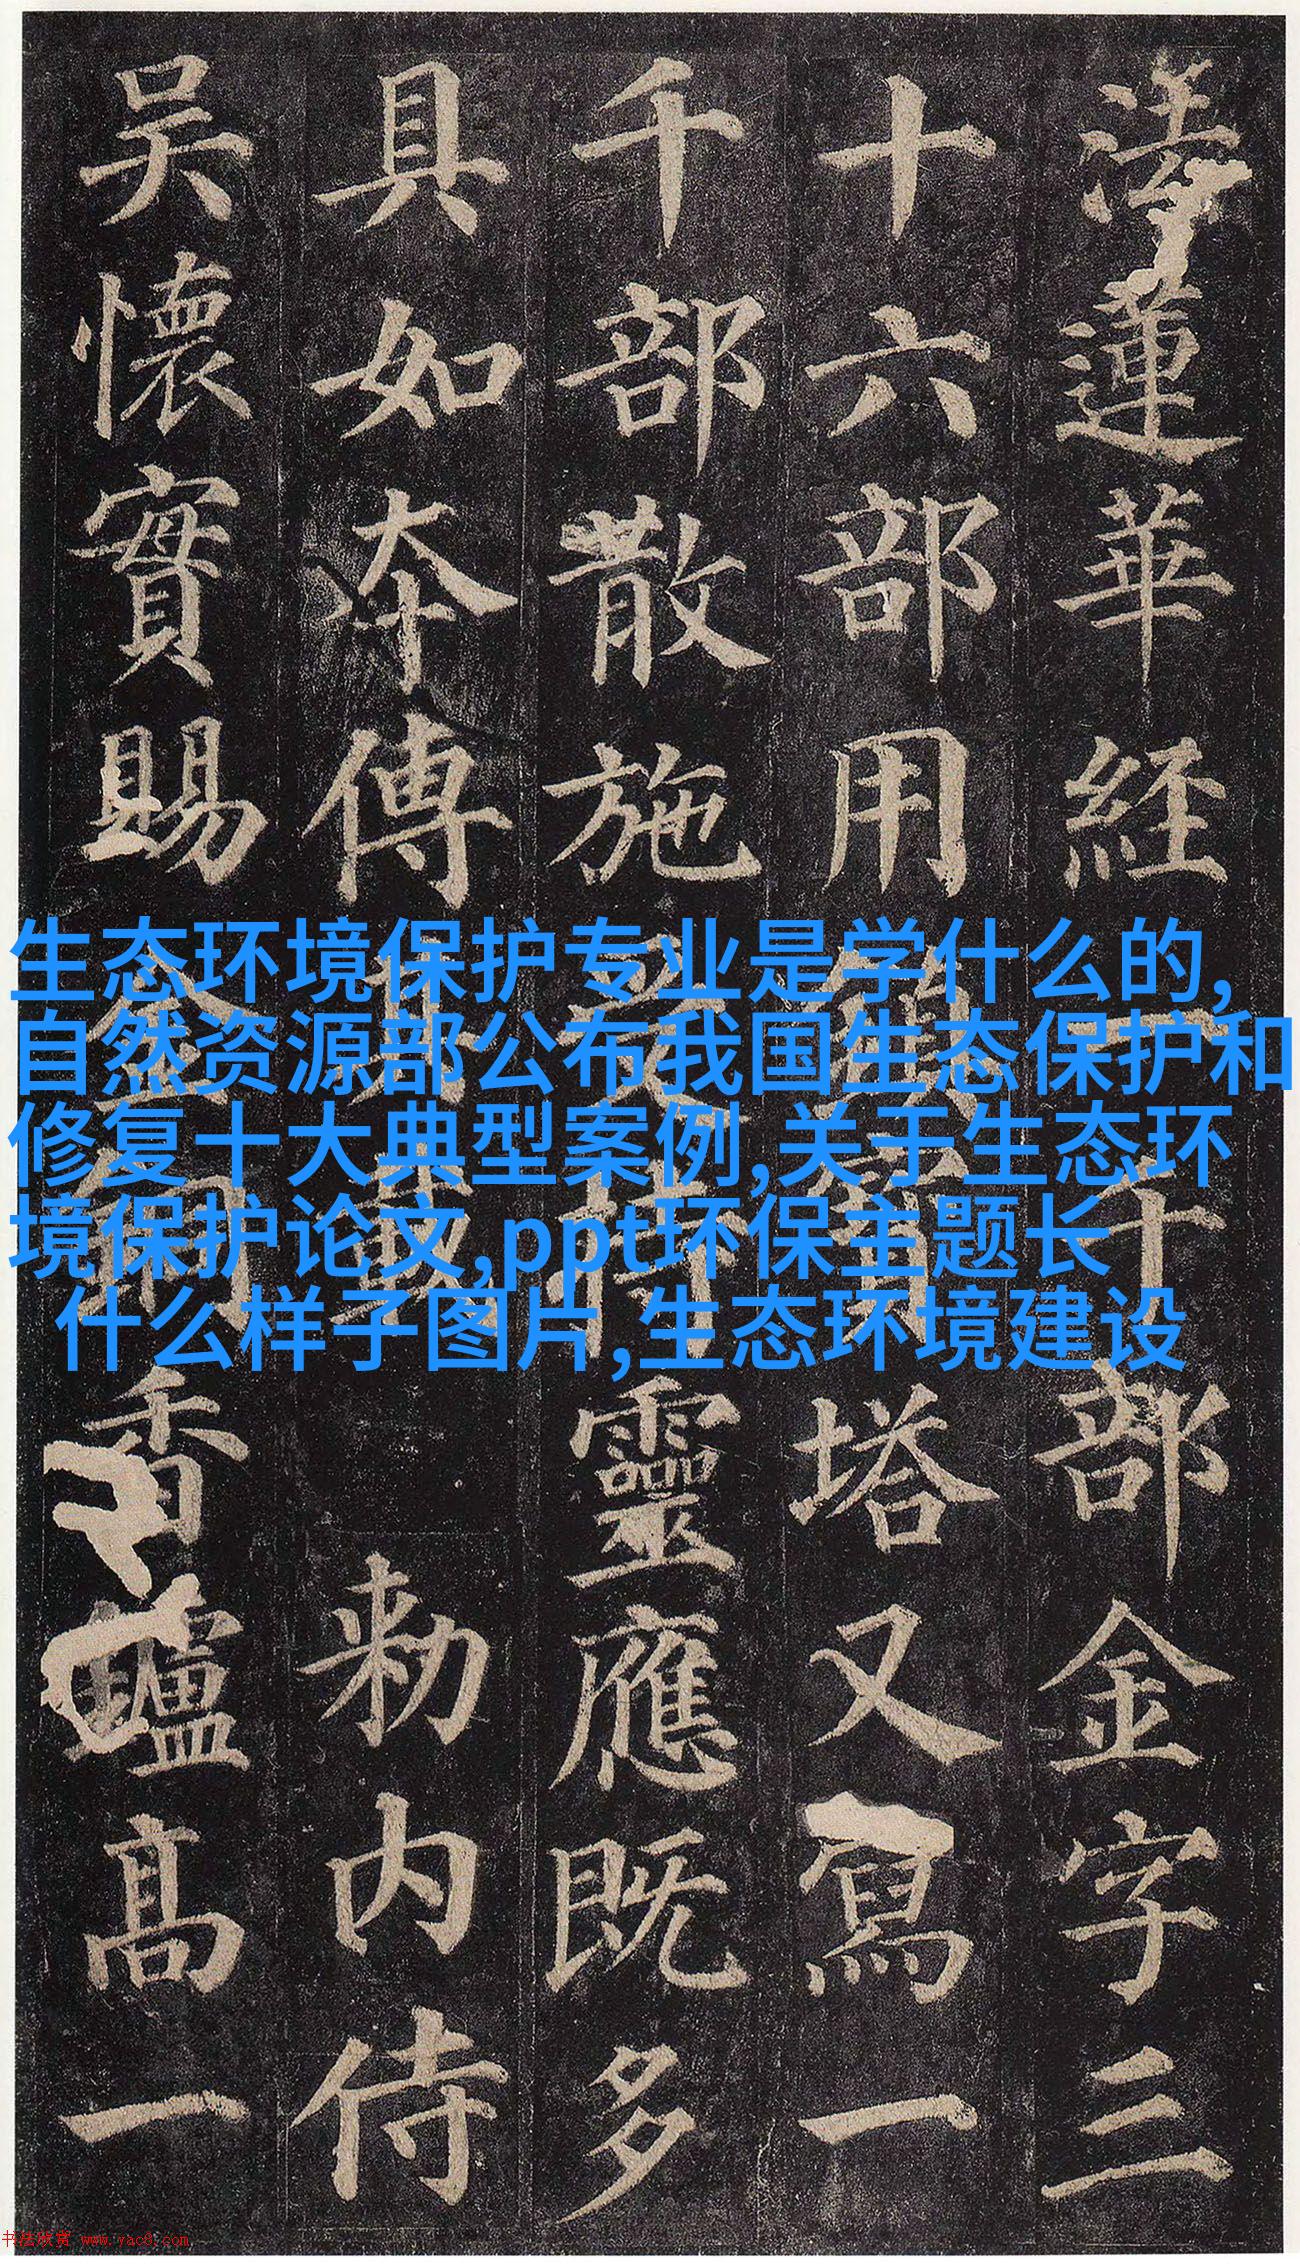 法蓮華經一千部金字三
十六部用鎮寶塔又寫一
千部散施受持靈應既多
具如本傳其載勅内侍
吳懷實賜金銅香鑪高一
生态环境保护专业是学什么的,
自然资源部公布我国生态保护和
修复十大典型案例,关于生态环
境保护论文,ppt环保主题长
什么样子图片,生态环境建设
书法欣赏 www.yac8.com